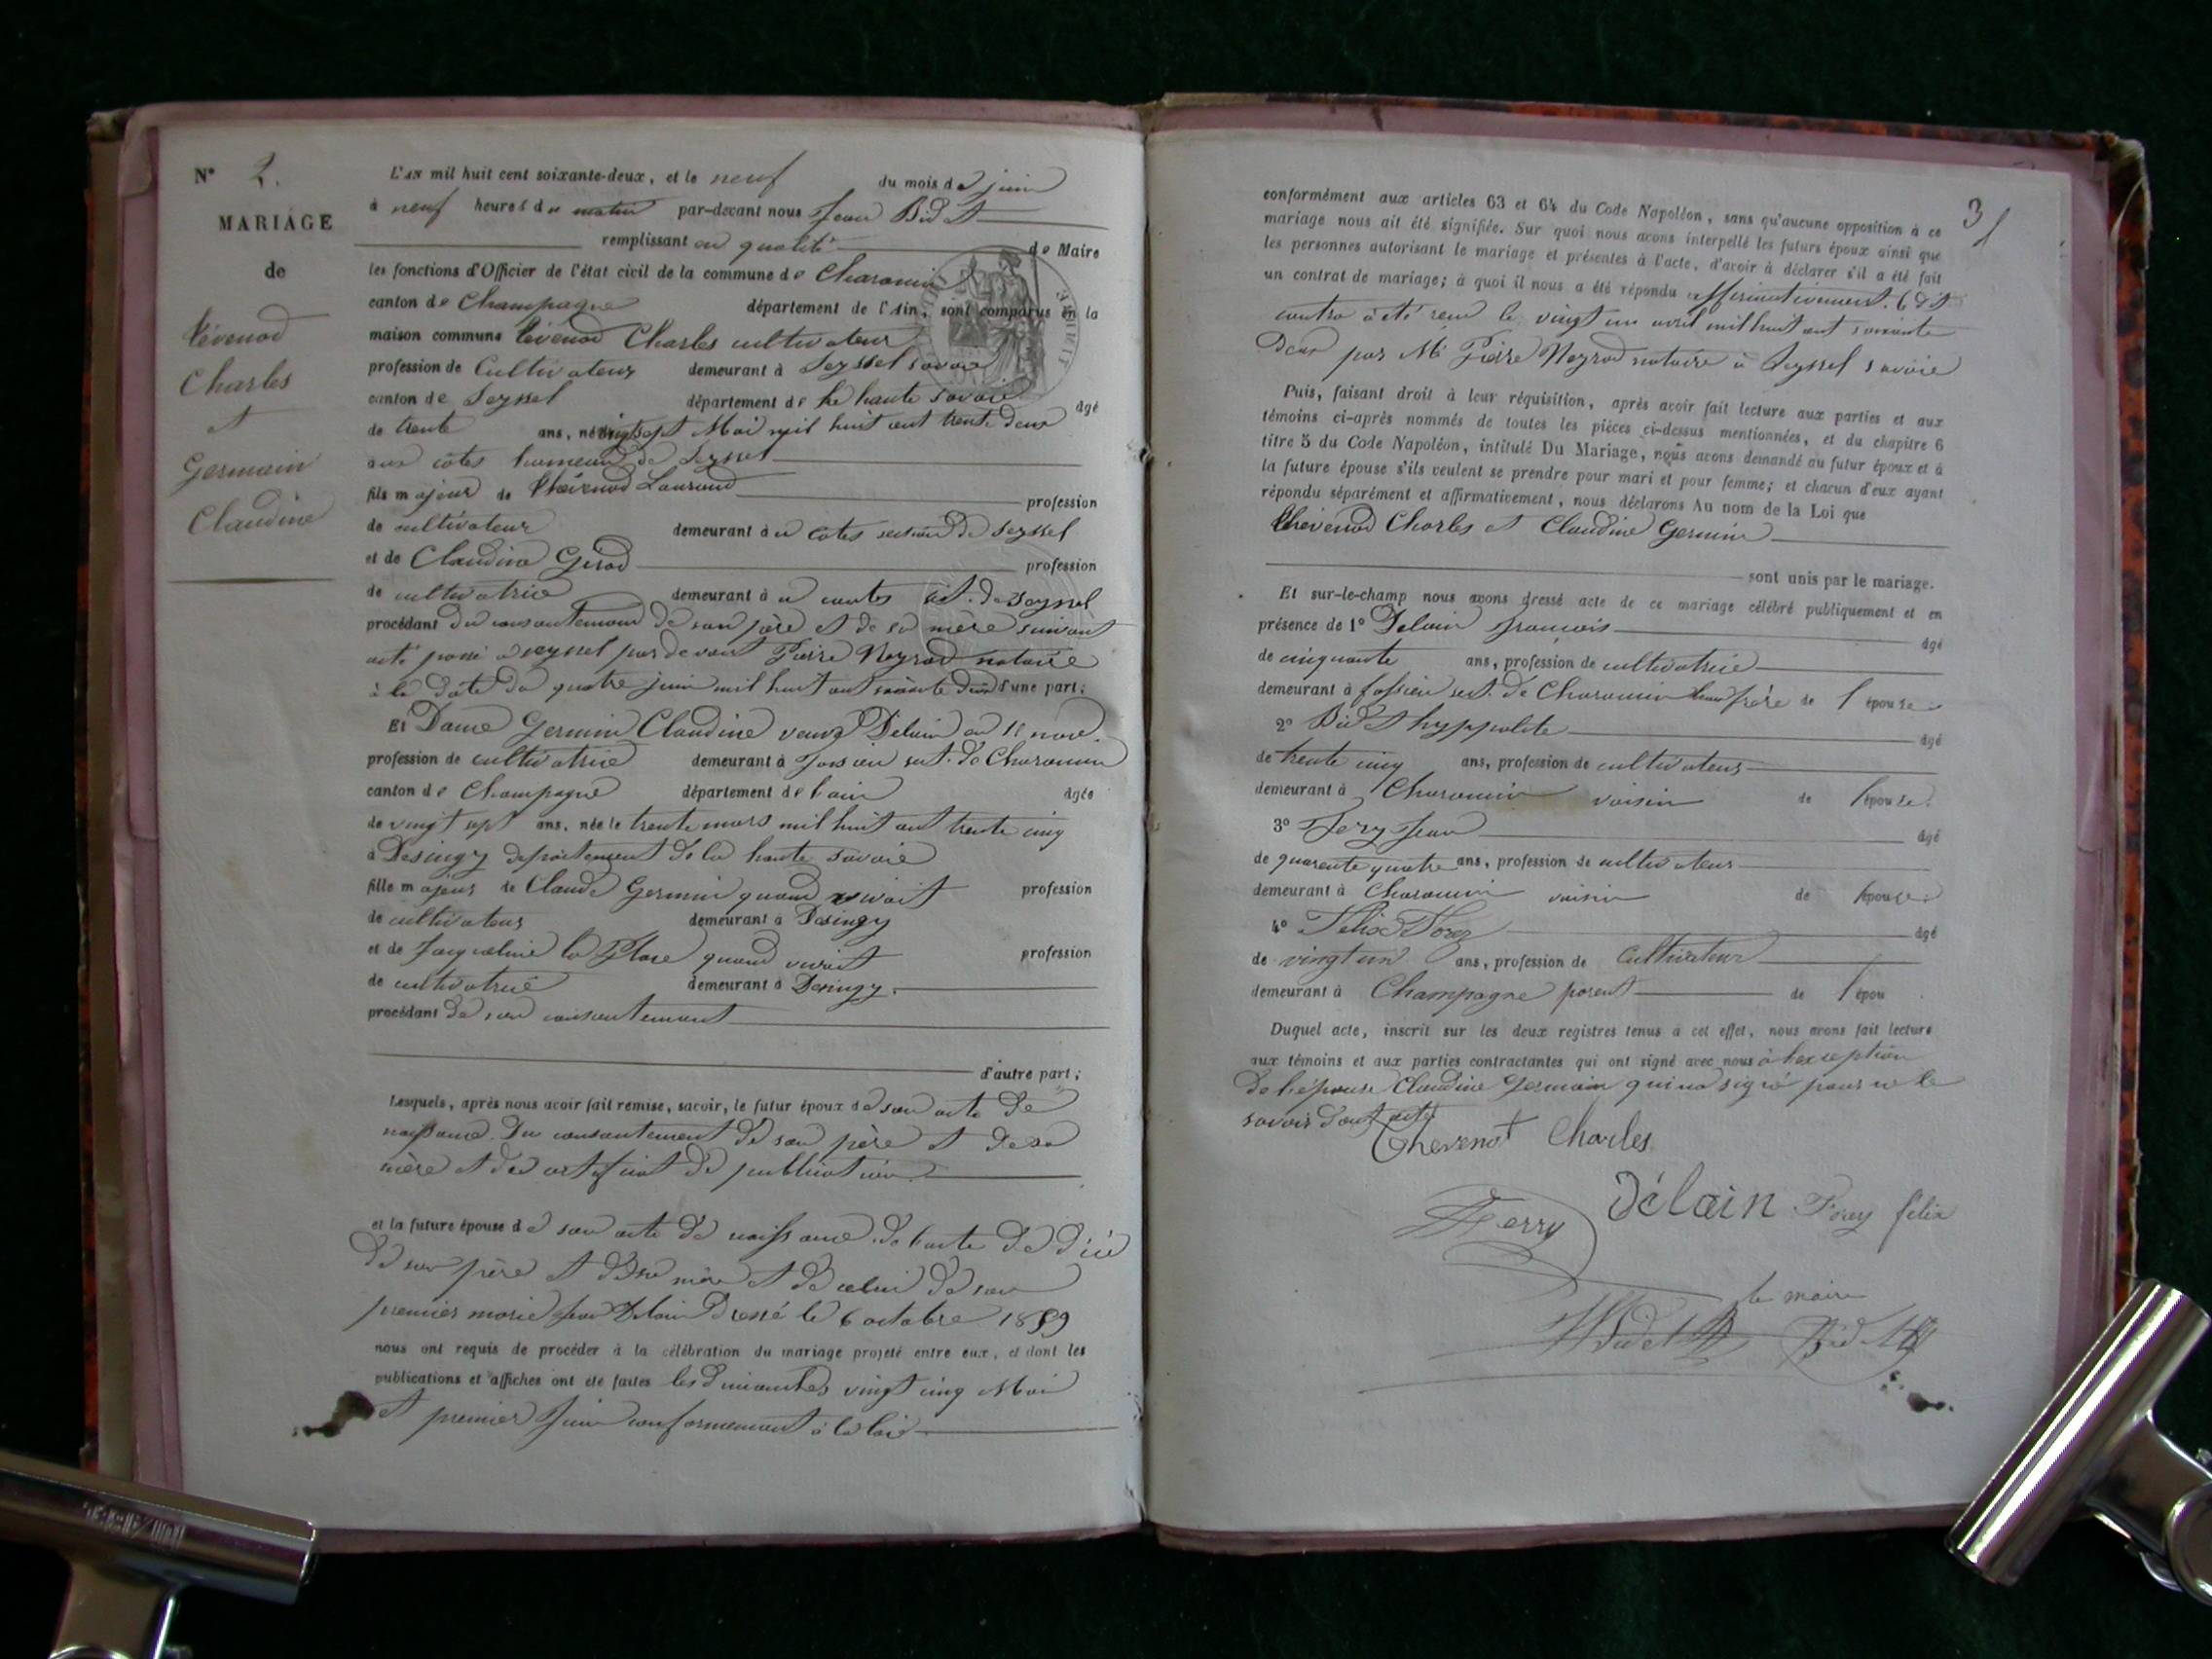 N° 2.
MARIAGE
de
Chévenod
Charles
et
Germain
Claudine
L'AN mil huit cent soixante-deux, et le neuf du mois de juin
à neuf heures du matin par-devant nous Jean Bidet
remplissant en qualité de Maire
les fonctions d'Officier de l'état civil de la commune de Charancin
canton de Champagne département de l'Ain, sont comparus en la
maison commune Chévenod Charles cultivateur
profession de Cultivateur demeurant à Seyssel savoie
canton de Seyssel département de la haute savoie âgé
de trente ans, né vingt sept Mai mil huit cent trente deux
aux côtes hameau de Seyssel
fils majeur de Chévenod Laurend profession
de cultivateur demeurant à u côtes section de Seyssel
et de Claudine Girod profession
de cultivatrice demeurant à u coutes sect. de Seyssel
procédant du consentement de son père et de sa mère suivant
acte passé a seyssel par devant Pierre Neyrod notaire
à la date du quatre juin mil huit cent soixante deux d'une part;
Et Dame Germin Claudine veuve Delain en 1er noce
profession de cultivatrice demeurant à fossieu sect. de Charancin
canton de Champagne département de l'ain âgée
de vingt sept ans, née le trente mars mil huit cent trente cinq
à Desingy département de la haute savoie
fille majeur de Claude Germin quand vivait profession
de cultivateur demeurant à Desingy
et de Jacqueline la Place quand vivait profession
de cultivatrice demeurant à Desingy.
procédant de son consentement
d'autre part;
Lesquels, après nous avoir fait remise, savoir, le futur époux de son acte de
naissance. Du consentement de son père et de sa
mère et des certificat de publication
et la future épouse de son acte de naissance de l'acte de décé
de son père et de sa mère et de celui de son
premier marie Jean Delain Dressé le 6 octobre 1859
nous ont requis de procéder à la célébration du mariage projeté entre eux, et dont les
publications et affiches ont été faites les Dimanches vingt cinq Mai
et premier Juin conformement à la loi
3
conformément aux articles 63 et 64 du Code Napoléon, sans qu'aucune opposition à ce
mariage nous ait été signifiée. Sur quoi nous avons interpellé les futurs époux ainsi que
les personnes autorisant le mariage et présentes à l'acte, d'avoir à déclarer s'il a été fait
un contrat de mariage; à quoi il nous a été répondu affirmativement. Cdit
contra à été reçu le vingt un avril mil huit cent soixante
Deux par Me Pierre Neyrod notaire à Seyssel savoie
Puis, faisant droit à leur réquisition, après avoir fait lecture aux parties et aux
témoins ci-après nommés de toutes les pièces ci-dessus mentionnées, et du chapitre 6
titre 5 du Code Napoléon, intitulé Du Mariage, nous avons demandé au futur époux et à
la future épouse s'ils veulent se prendre pour mari et pour femme; et chacun d'eux ayant
répondu séparément et affirmativement, nous déclarons Au nom de la Loi que
Chévenod Charles et Claudine Germin
sont unis par le mariage.
Et sur-le-champ nous avons dressé acte de ce mariage célébré publiquement et en
présence de 1° Delain françois âgé
de cinquante ans, profession de cultivatrice
demeurant à fossieu sect. de Charancin beau frère de l'épouse
2° Bidet hyppolite âgé
de trente cinq ans, profession de cultivateur
demeurant à Charancin voisin de l'épouse.
3° Fery Jean âgé
de quarente quatre ans, profession de cultivateur
demeurant à Charancin voisin de l'épouse.
4° Félix Foray âgé
de vingt un ans, profession de Cultivateur
demeurant à Champagne parent de l'épou
Duquel acte, inscrit sur les deux registres tenus à cet effet, nous avons fait lecture
aux témoins et aux parties contractantes qui ont signé avec nous à l'exseption
de l'épouse Claudine Germain qui na signé pour ne le
savoir dont acte
Chevenot Charles
Délain Foray félix
Ferry
le maire
H Bidet Bidet